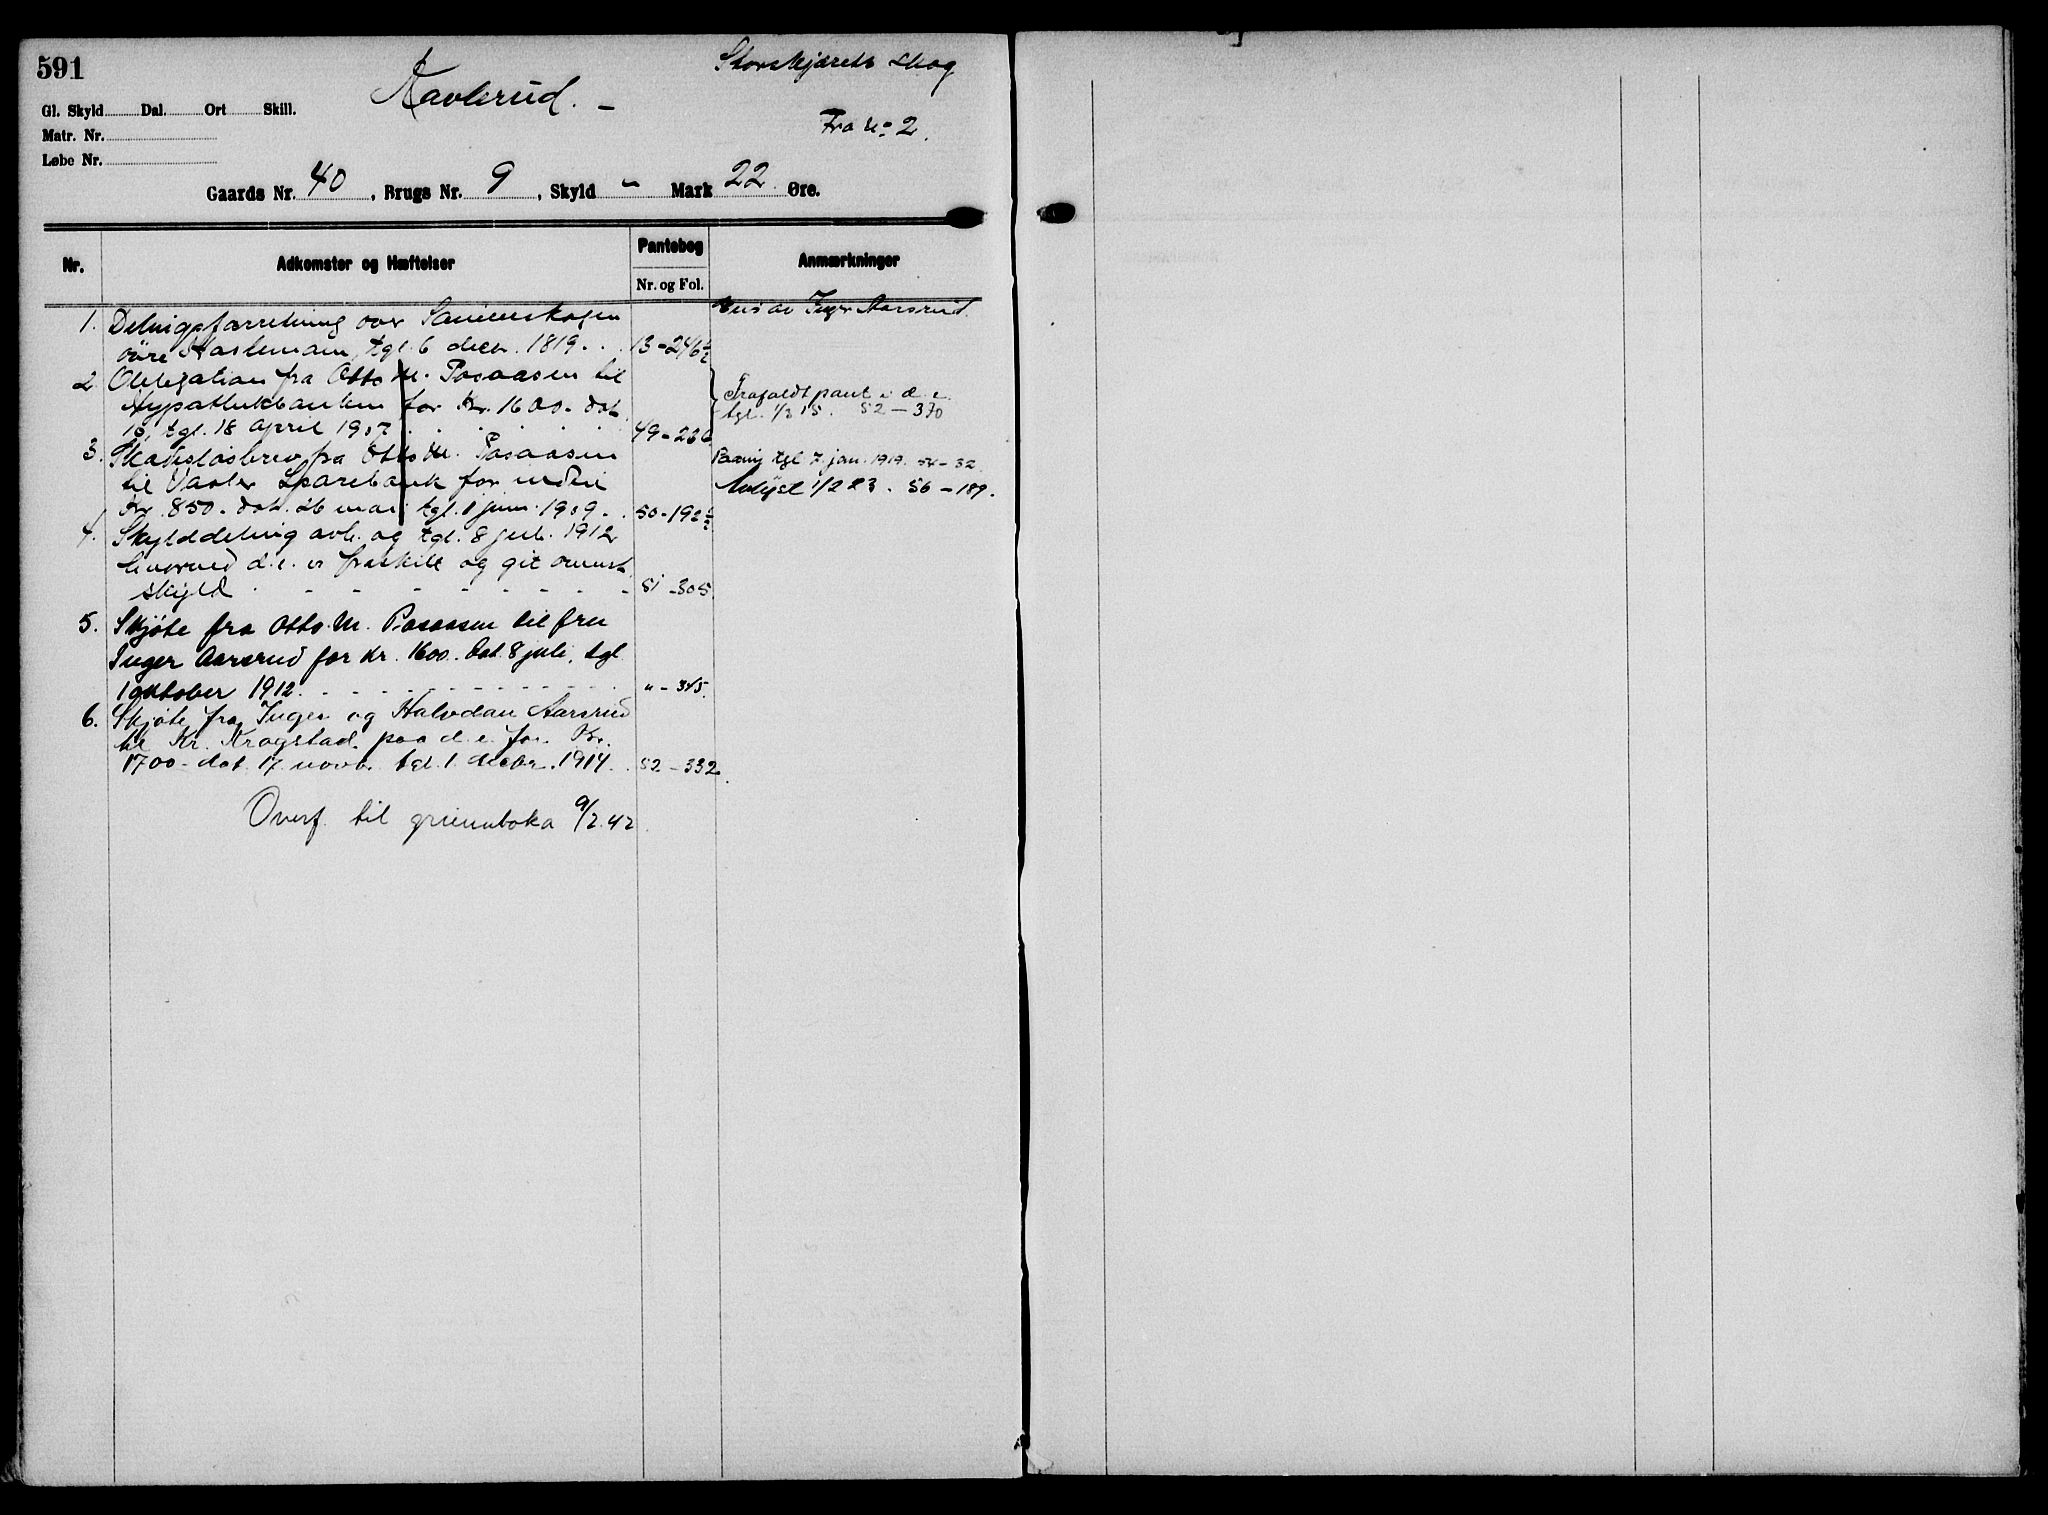 591
Storskjærets skog
Navlerud. –
Gl. Skyld Dal. Ort Skill.
Fra No 2.
Matr. Nr.
Løbe Nr.
Gaards Nr. 40, Brugs Nr. 9, Skyld – Mark 22 Øre.
Nr. Adkomster og Hæftelser Pantebog Anmærkninger
Nr. og Fol.
1. Delingsforretning over
øvre Haslemain, tgl. 6 decr. 1819. . 13-246½
Inger Aarsrud.
2. Obligation fra Otto M. Posaasen til
Hypothekbanken for Kr. 1600. dat.
16, tgl. 18 april 1907. . . . . 49-236
Frafaldt pant i d. e.
tgl. 1/3 15. 52-370
3. Skadesløsbrev fra Otto M. Posaasen
til Vaaler Sparebank for indtil
Kr. 850. dat. 26 mai, tgl. 1 juni 1909. . 50-192½
tgl 7 jan. 1919. 54-32.
Avlyst 1/2 23. 56-189.
4. Skylddeling avh. og tgl. 8 juli 1912
hvorved d. e. er fraskilt og git ovennt.
skyld . - - - - - - - - 51-305.
5. Skjøte fra Otto M. Posaasen til fru
Inger Aarsrud for Kr. 1600. Dat. 8 juli, tgl.
1 oktober 1912. - - - - - - - - „-345.
6. Skjøte fra Inger og Halvdan Aarsrud
til Kr. Krogstad paa d. e. for Kr.
1700- dat. 17 novb. tgl. 1. decbr. 1914. . 52-332.
Overf. til grunnboka 9/2.42.